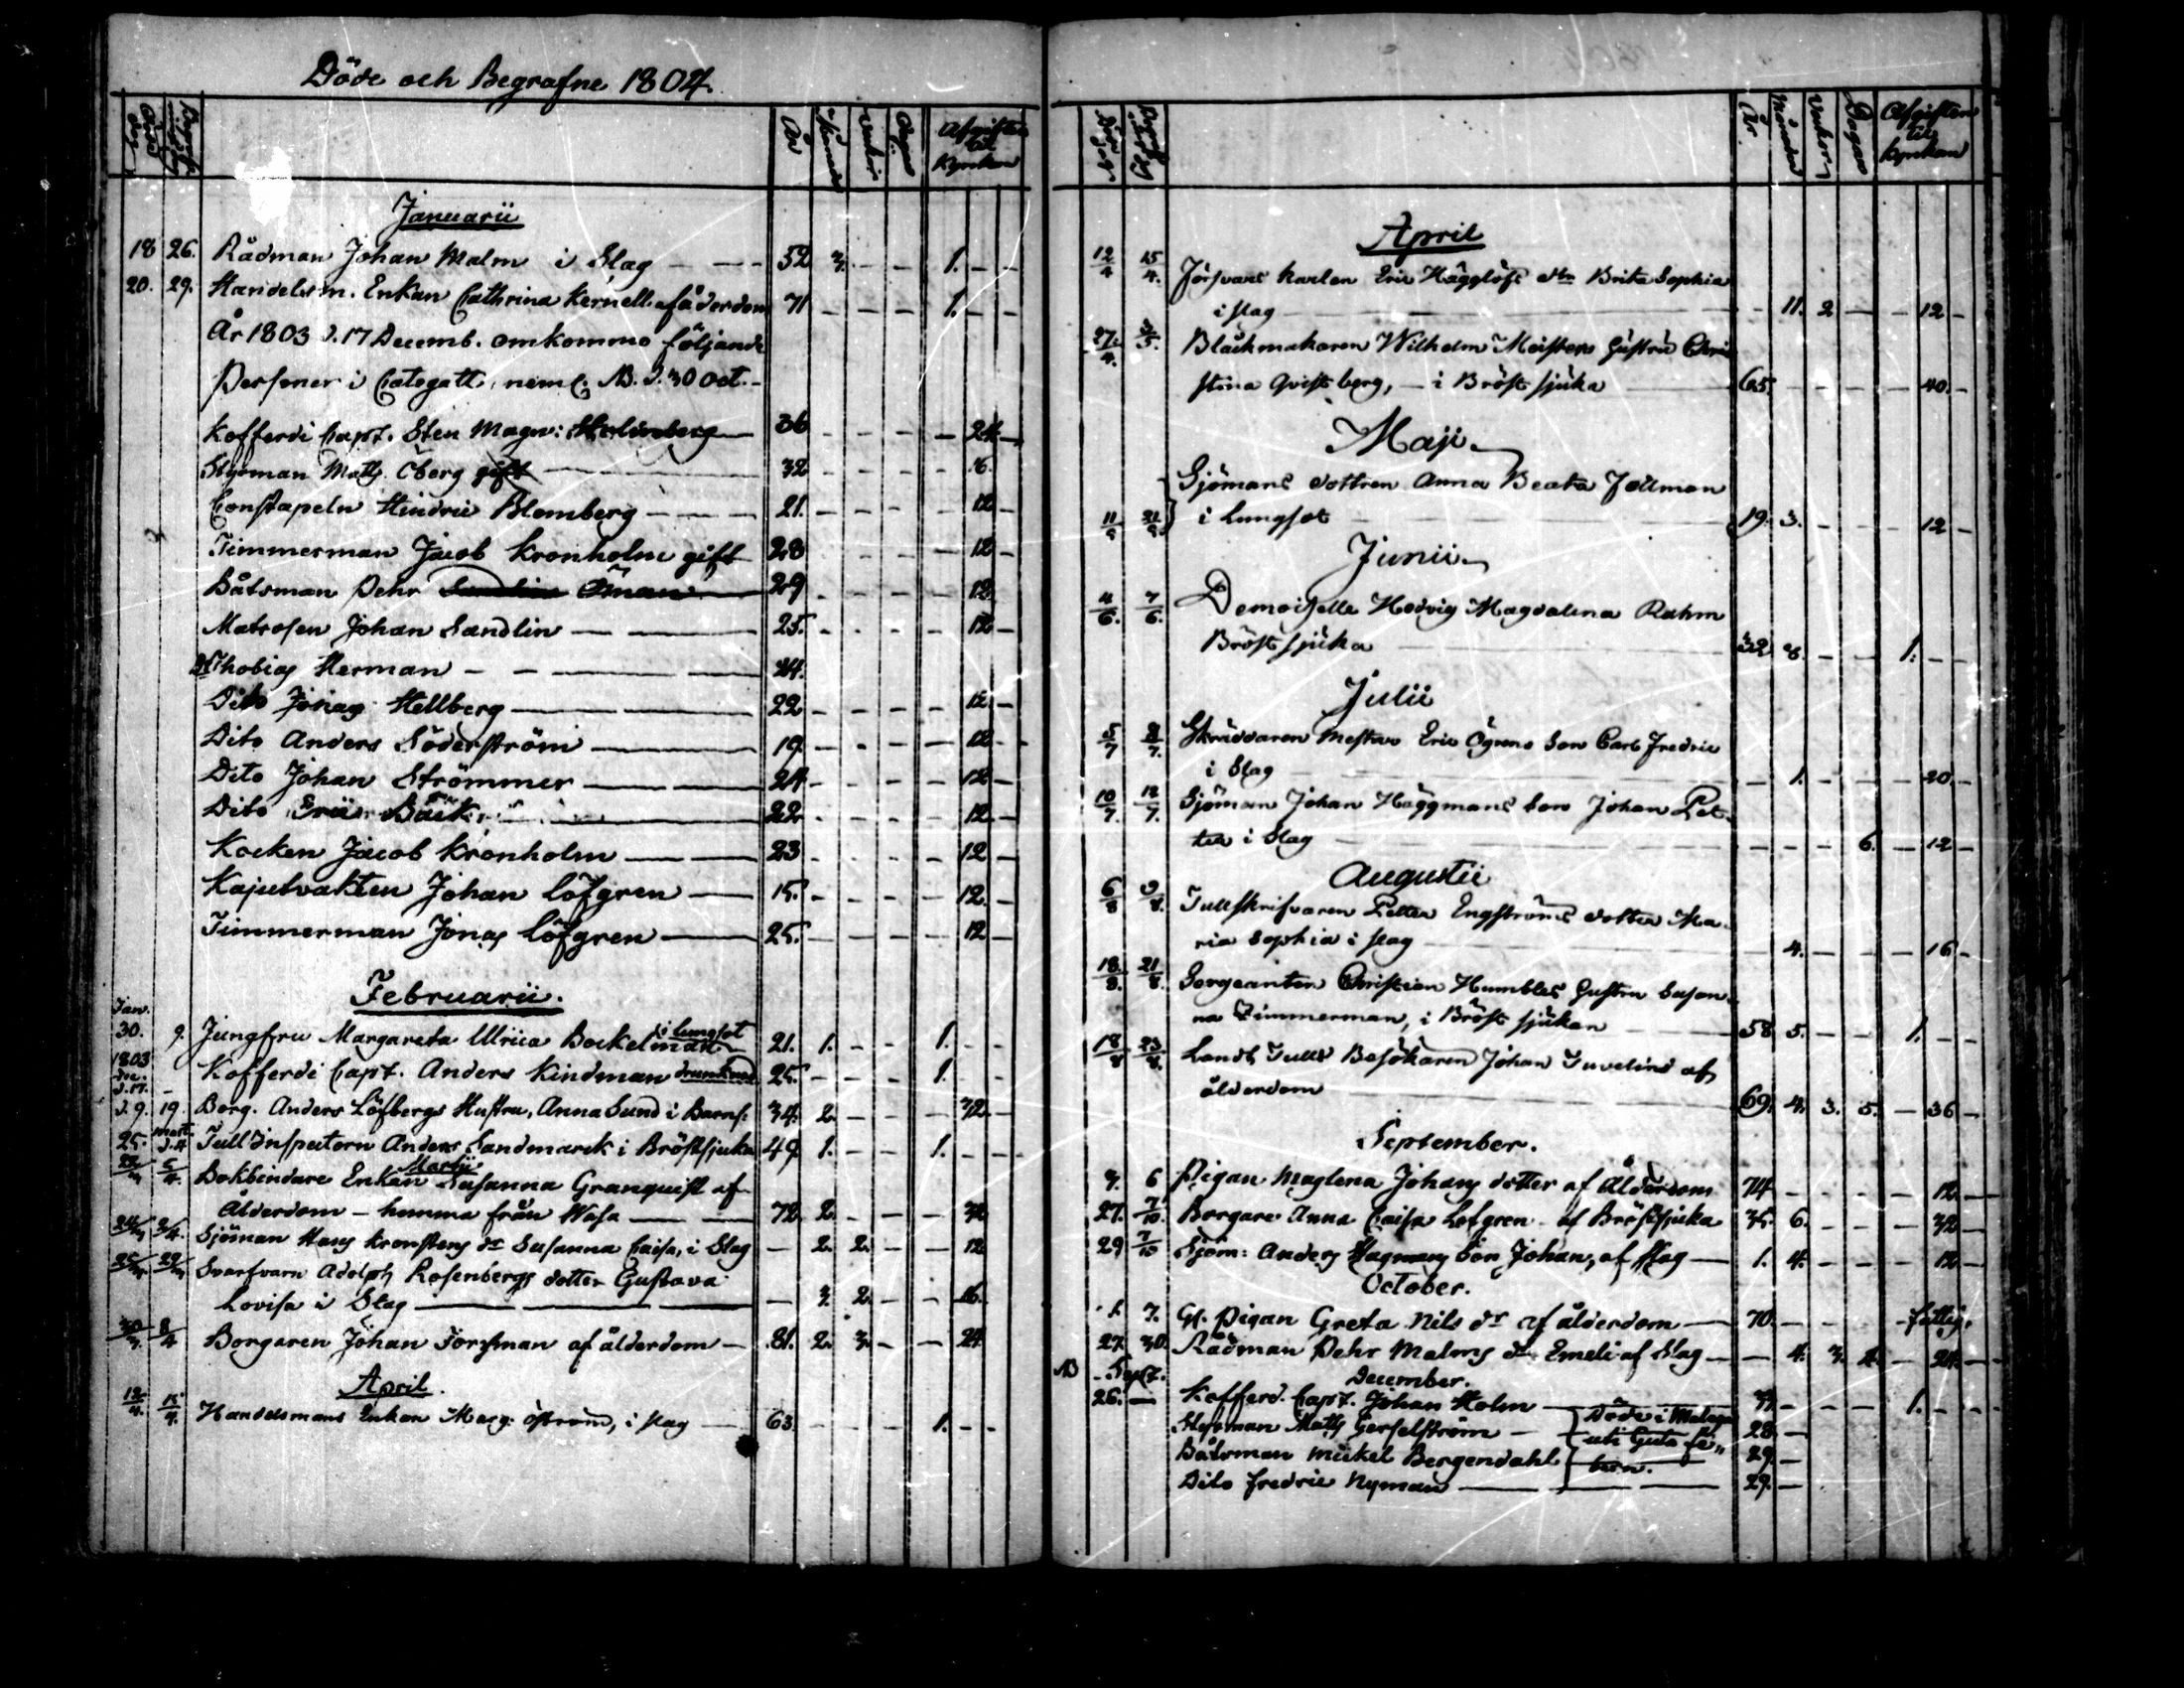 Döde och Begrafne 1804.
År Månader Veckor Dagar Afgiften til Kyrkan
Januarii
18 26. Rådman Johan Malm i Slag 52 3. - - 1. - -
20. 29. Handelsm. Enkan Cathrina Kernell af åderdom 71 - - - 1. - -
År 1803 d. 17 Decemb. omkommo följande
Personer i Categatt, neml. NB. d. 30 Oct.
Kofferdi Capt. Sten Magn: 36 - - - - 24 -
Styrman Matts Öberg gift 32 - - - - 16.
Constapeln Hindric Blomberg 21. - - - - 12 -
Timmerman Jacob Kronholm gift 28 - - - - 12 -
Båtsman Pehr Sundlin Öman 29 - - - - 12
Matrosen Johan Sandlin 25. - - - - 12 -
Dº Thobias Herman 24.
Dito Jonas Hellberg 22 - - - - 12. -
Dito Anders Söderström 19. - - - - 12 -
Dito Johan Strömmer 24 - - - - 12 -
Dito Eric Bäck 22 - - - - 12 -
Kocken Jacob Kronholm 23 - - - - 12 -
Kajutvakten Johan Löfgren 15. - - - - 12. -
Timmerman Jonas Löfgren 25. - - - - 12 -
Februarii.
Jan. 30. 9. Jungfru Margareta Ulrica Bockelman i lungsot 21. 1. - - 1. - -
1803 Dec. d. 17. - Kofferdi Capt. Anders Kindman drunknad 25. - - - 1. - -
d. 9. 19. Borg. Anders Löfbergs Hustru, Anna Sund i Barns: 34. 2. - - - 32 -
25. Mart. d. 4 Tull Inspectorn Anders Sandmarck i Bröstsjuka 49 1. - - 1. - -
Martii
5/4. Bokbindare Enkan Susanna Granquist af
Ålderdom - hemma från Wasa 72. 2. - - - 32
24/3 3/4. Sjöman Hans Kronstens dr Susanna Caisa, i Slag - 2. 2. - - 12
25/3. 29/3 Svarfvarn Adolph Rosenbergs dotter Gustava
Lovisa i Slag - 3. 2. - - 16.
30/3. 8/4 Borgaren Johan Forssman af ålderdom - 81. 2. 3. - - 24
April.
12/4. 15/4. Handelsmans Enkan Marg: Öström, i slag 63. - - - 1. - -
År Månader Veckor Dagar Afgiften til Kyrkan
April
12/4 15/4. Försvars karlen Eric Hägglöfs dtr Brita Sophia
i slag - 11. 2 - - 12 -
27./4. 3/5. Bläckmakaren Wilhelm Meisters Hustru Chri
stina Qvistberg, - i Bröst sjuka 65. - - - - 40. -
Maji
Sjömans dottren Anna Beata Fellman
11 21 i Lungsot 19. 3. - - - 12 -
Junii
4/6. 7/6. Demoiselle Hedvig Magdalena Rahm
Bröst sjuka 32 8. - - 1. - -
Julii
5/7 8/7. Skräddaren Mester Eric Ögrens Son Carl Fredric
i Slag - 1. - - - 20. -
10/7. 12/7. Sjöman Johan Häggmans Son Johan Pet-
ter i Slag - - - 6. - 12 -
Augustii
6/8 9/8. Tullskrifvaren Petter Engströms dotter Ma-
ria Sophia i slag 4. - - - 16 -
18./8. 21/8. Sergeanten Christian Humbles Hustru Susan-
na Zimmerman, i Bröst sjukan 58 5. - - 1. - -
18/8 23/8. Landt Tulls Besökaren Johan Juvelius af
ålderdom 69. 4. 3. 5. - 36 -
September.
6 Pigan Maglena Johans dotter af Ålderdom 74 - - - - 12 -
27. 7/10. Borgare Anna Caisa Löfgren af Bröstsjuka 35. 6. - - - 32 -
29 7/10 Sjöm: Anders Hagmans Son Johan, af Slag 1. 4. - - - 12 -
October.
1. 7. Gl. Pigan Greta Nils dr af ålderdom 70. - - - fattig.
27. 30. Rådman Pehr Malms dtr Emeli af Slag - 4. 3. 4. - 24. -
NB Sept. December.
26. - Kofferd. Capt. Johan Holm - - - 1. - -
Styrman Matts Gerfelström Döde i Malaga 28. -
Båtsman Mickel Bergendahl uti Gula fe" 29. -
Dito Fredric Nyman bern. 29. -